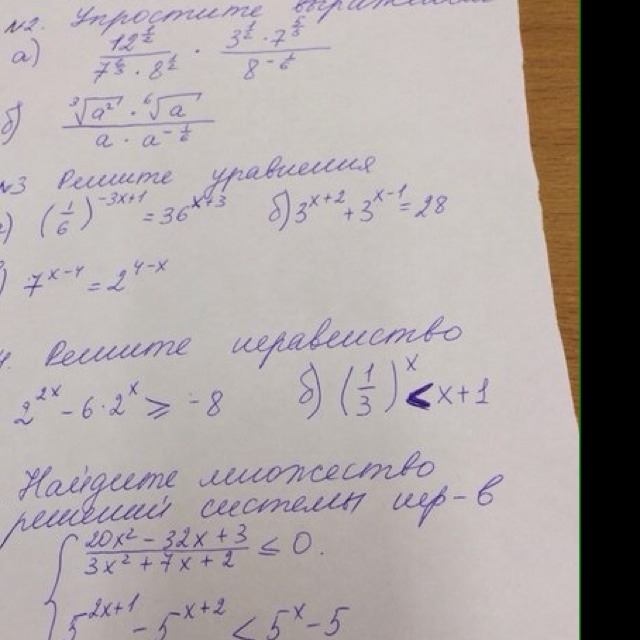 №2. Упростите выражения
а) 12^½ / (7^⅓ · 8^½) · (3^½ · 7^⅚) / 8^(-⅙)
б) (³√a² · ⁶√a) / (a · a^(-⅙))
№3 Решите уравнения
(1/6)^(-3x+1) = 36^(x+3) б) 3^(x+2) + 3^(x-1) = 28
7^(x-4) = 2^(4-x)
4. Решите неравенство
2^(2x) - 6·2^x ≥ -8 б) (1/3)^x < x+1
Найдите множество
решений системы нер-в
{ (20x² - 32x + 3) / (3x² + 7x + 2) ≤ 0.
5^(2x+1) - 5^(x+2) < 5^x - 5